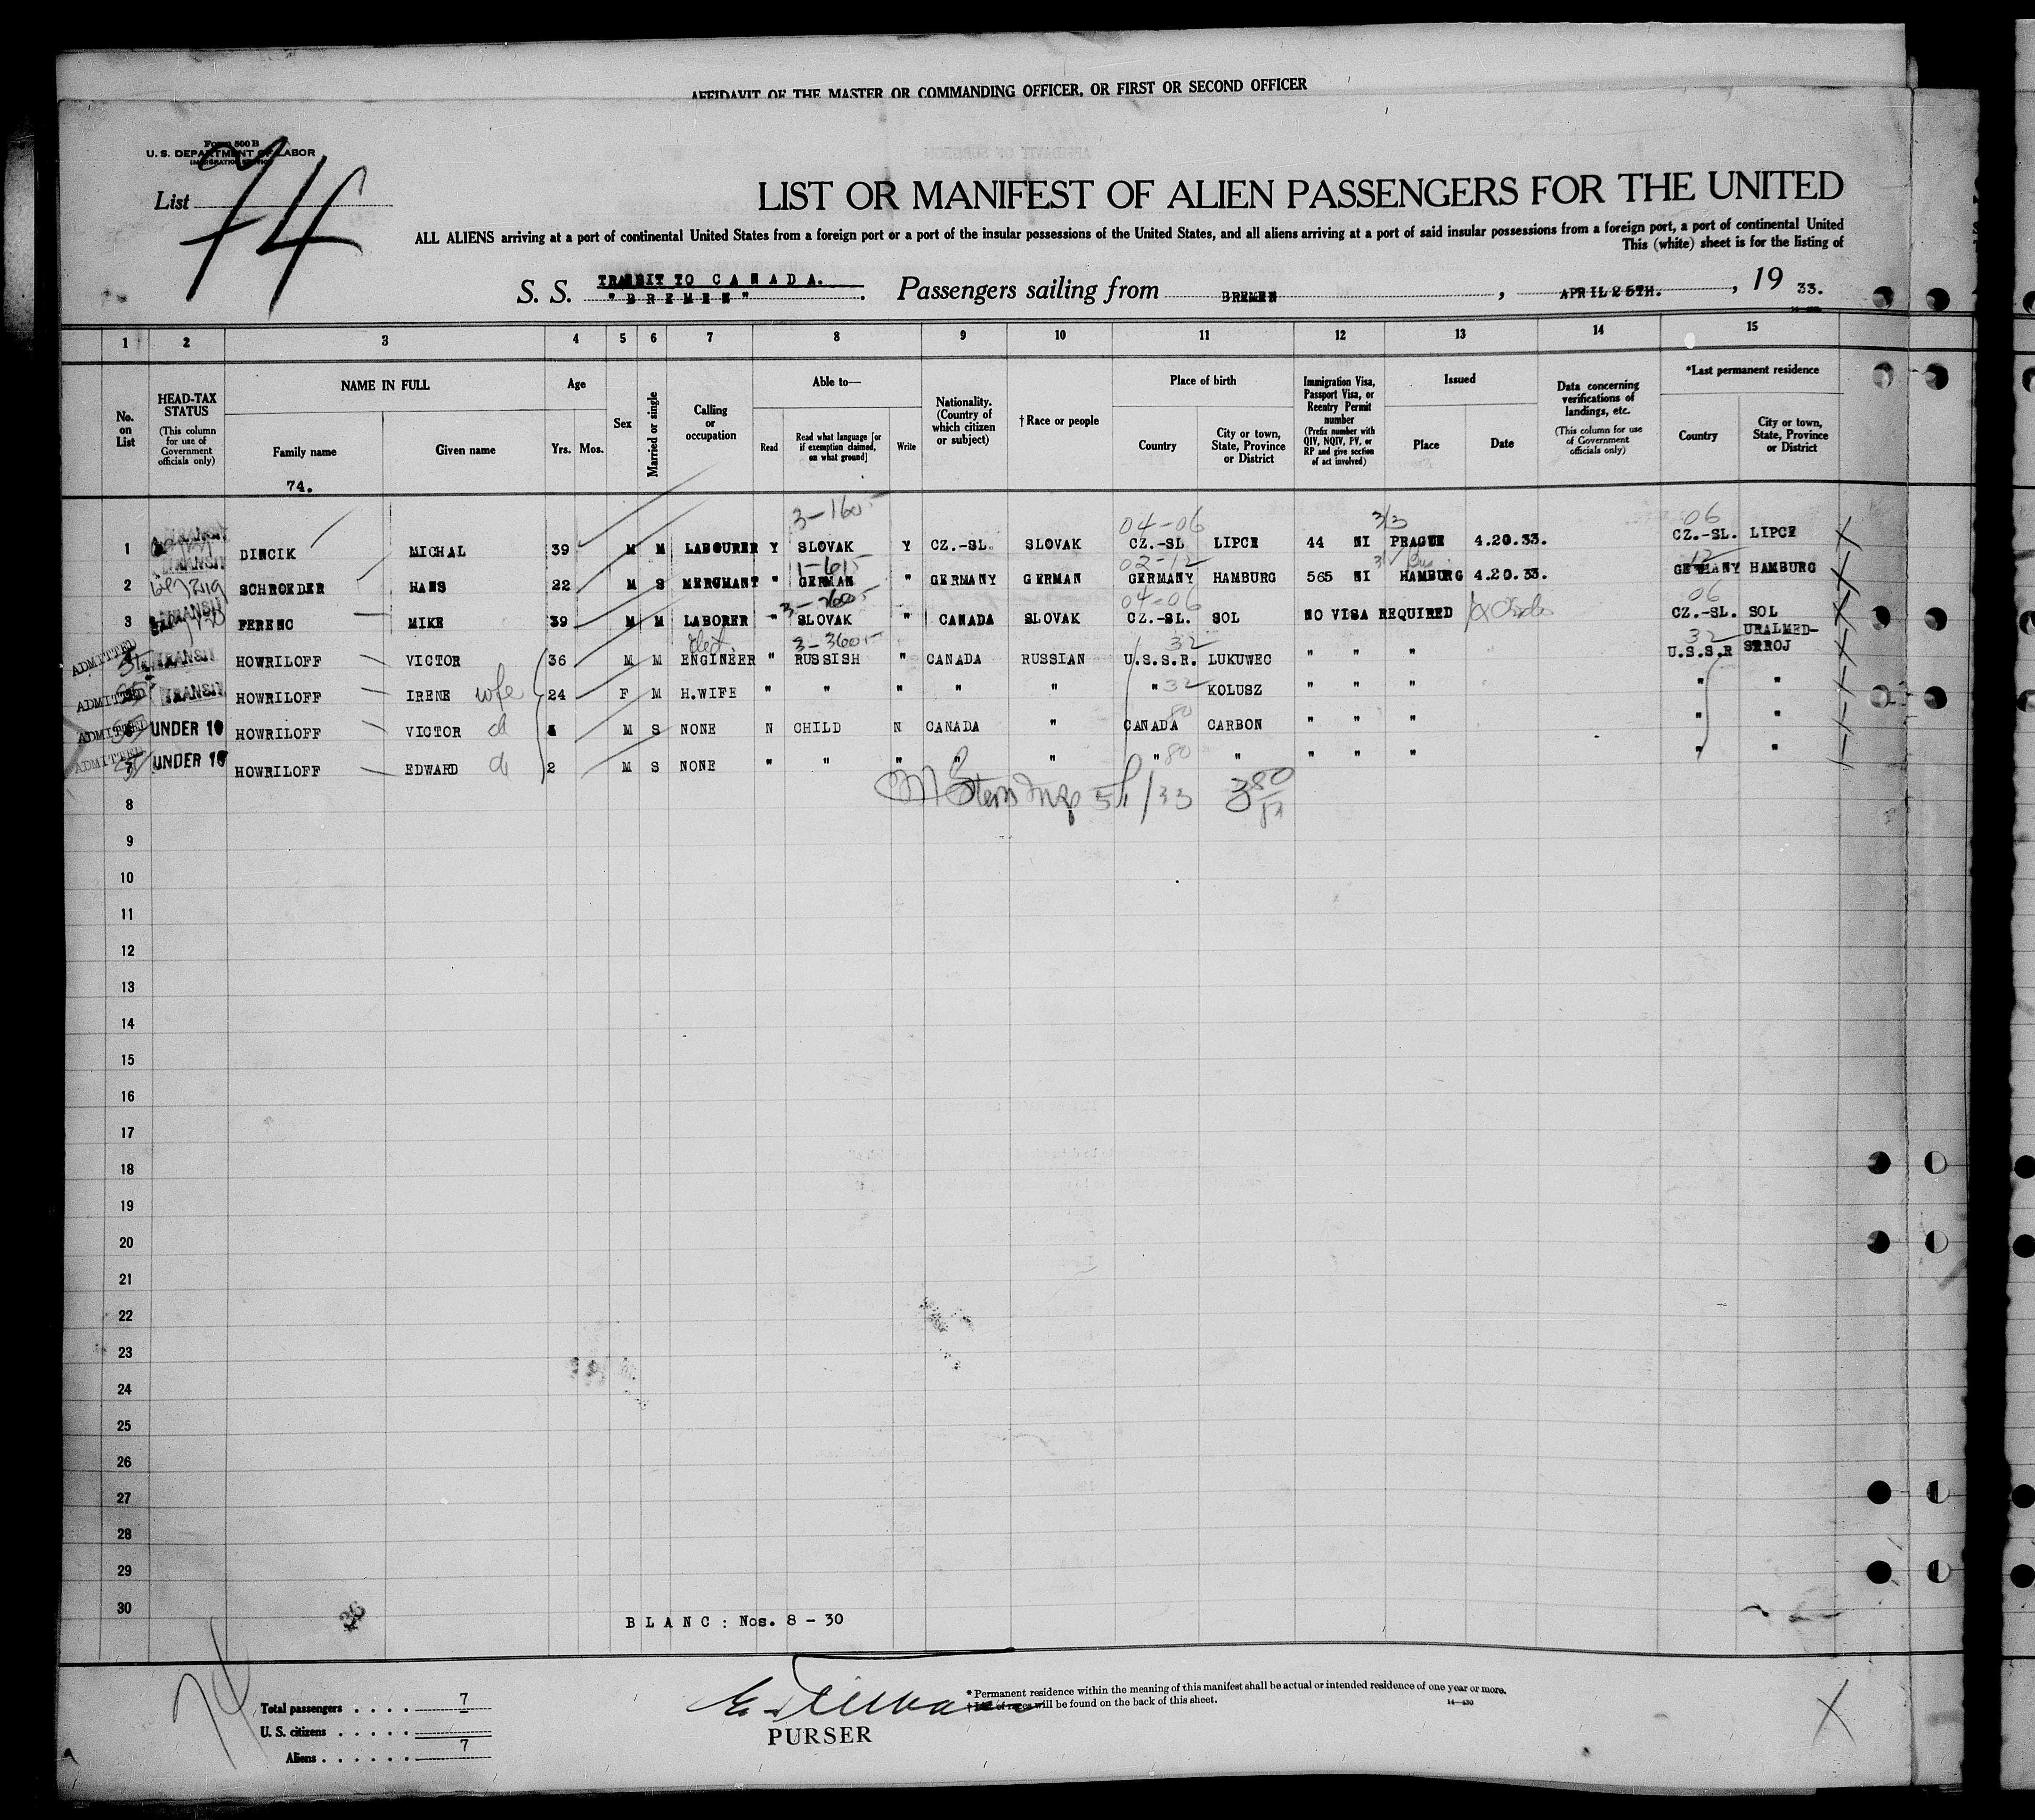 AFFIDAVIT OF THE MASTER OR COMMANDING OFFICER, OR FIRST OR SECOND OFFICER
Form 500 B
U. S. DEPARTMENT OF LABOR
IMMIGRATION SERVICE
List 74
LIST OR MANIFEST OF ALIEN PASSENGERS FOR THE UNITED
ALL ALIENS arriving at a port of continental United States from a foreign port or a port of the insular possessions of the United States, and all aliens arriving at a port of said insular possessions from a foreign port, a port of continental United
This (white) sheet is for the listing of
TRANSIT TO CANADA.
S. S. "BREMEN". Passengers sailing from BREMEN, APRIL 25TH., 19 33.
1 2 3 4 5 6 7 8 9 10 11 12 13 14 15
No. on List
HEAD-TAX STATUS
(This column for use of Government officials only)
NAME IN FULL
Family name
Given name
74.
Age
Yrs. Mos.
Sex
Married or single
Calling or occupation
Able to—
Read
Read what language [or if exemption claimed, on what ground]
Write
Nationality. (Country of which citizen or subject)
† Race or people
Place of birth
Country
City or town, State, Province or District
Immigration Visa, Passport Visa, or Reentry Permit number
(Prefix number with QIV, NQIV, PV, or RP and give section of act involved)
Issued
Place
Date
Data concerning verifications of landings, etc.
(This column for use of Government officials only)
*Last permanent residence
Country
City or town, State, Province or District
3-1605 04-06 3/3 06
1 TRANSIT DINCIK MICHAL 39 M M LABOURER Y SLOVAK Y CZ.-SL. SLOVAK CZ.-SL LIPCE 44 NI PRAGUE 4.20.33. CZ.-SL. LIPCE
1-615 02-12 12
2 TRANSIT SCHROEDER HANS 22 M S MERCHANT " GERMAN " GERMANY GERMAN GERMANY HAMBURG 565 NI HAMBURG 4.20.33. GERMANY HAMBURG
3-2605 04-06 06
3 TRANSIT FERENC MIKE 39 M M LABORER " SLOVAK " CANADA SLOVAK CZ.-SL. SOL NO VISA REQUIRED CZ.-SL. SOL
Elect. 3-3605 32 32
ADMITTED TRANSIT HOWRILOFF VICTOR 36 M M ENGINEER " RUSSISH " CANADA RUSSIAN U.S.S.R. LUKUWEC " " " U.S.S.R URALMED-STROJ
ADMITTED TRANSIT HOWRILOFF IRENE wife 24 F M H.WIFE " " " " " " 32 KOLUSZ " " " " "
ADMITTED UNDER 16 HOWRILOFF VICTOR M S NONE N CHILD N CANADA " CANADA 80 CARBON " " " " "
ADMITTED UNDER 16 HOWRILOFF EDWARD 2 M S NONE " " " " " " 80 " " " " " "
8
9
10
11
12
13
14
15
16
17
18
19
20
21
22
23
24
25
26
27
28
29
30
BLANC: Nos. 8 - 30
74
Total passengers . . . . 7
U. S. citizens . . . . .
Aliens . . . . . . 7
PURSER
* Permanent residence within the meaning of this manifest shall be actual or intended residence of one year or more.
† List of races will be found on the back of this sheet.
14—430